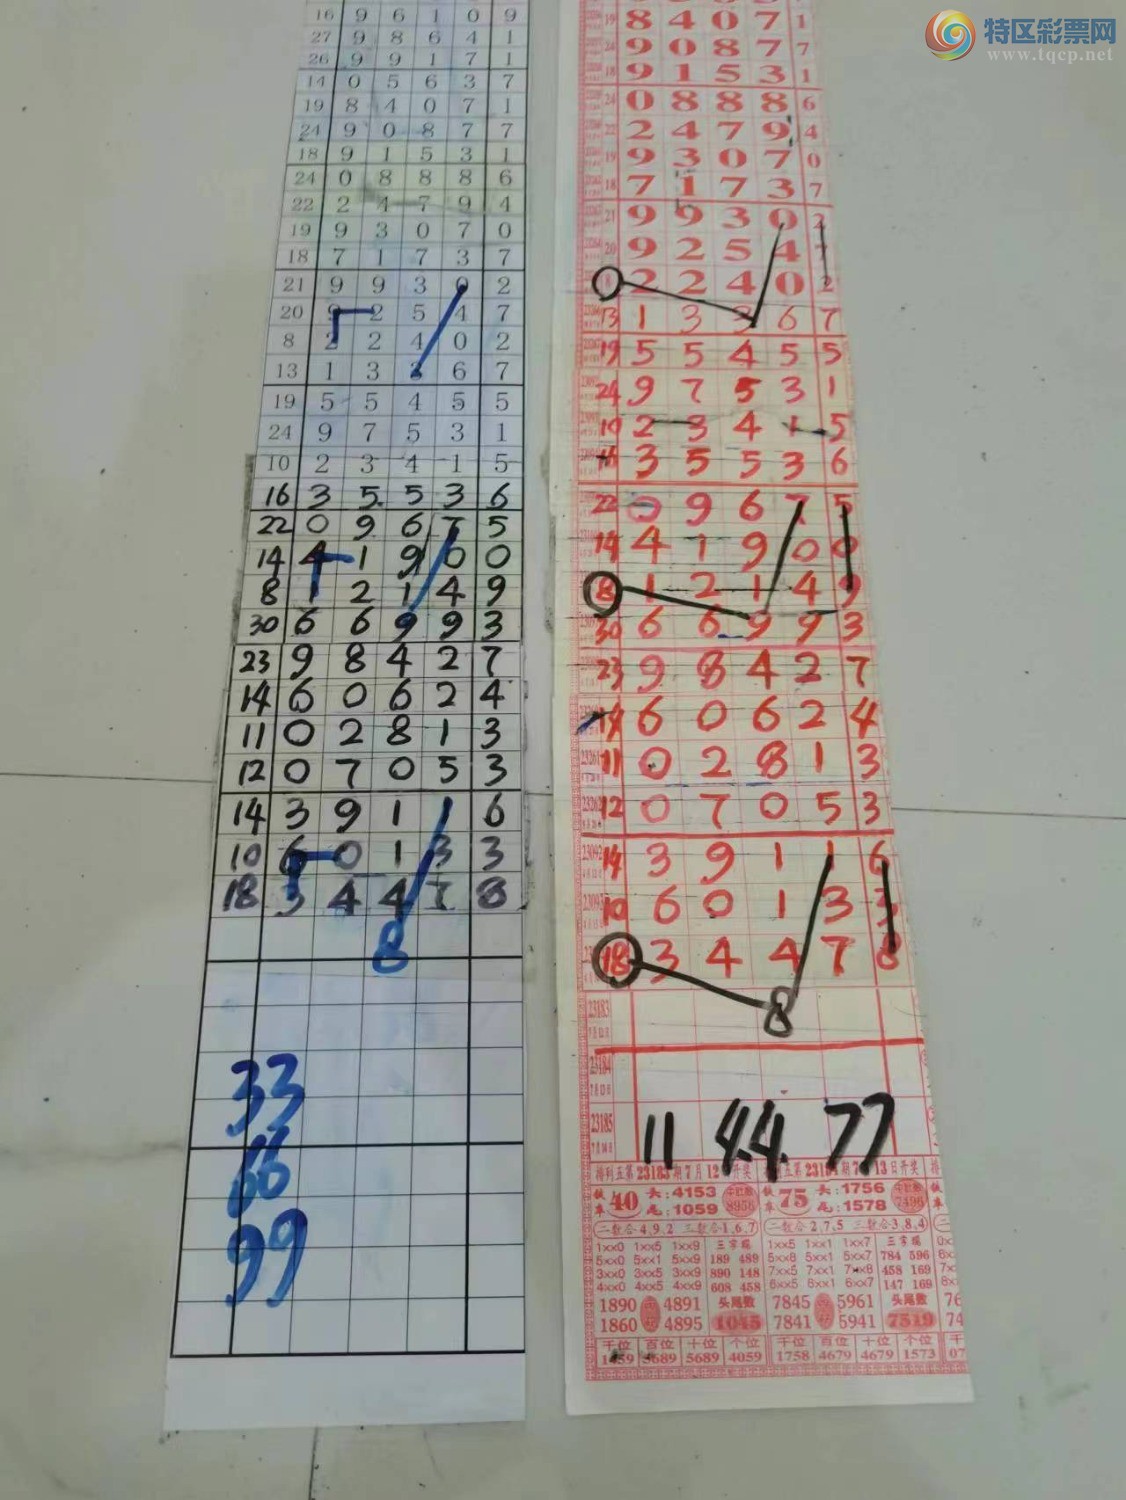 特区彩票网
www.tqcp.net
16 9 6 1 0 9
27 9 8 6 4 1
26 9 9 1 7 1
14 0 5 6 3 7
19 8 4 0 7 1
24 9 0 8 7 7
18 9 1 5 3 1
24 0 8 8 8 6
22 2 4 7 9 4
19 9 3 0 7 0
18 7 1 7 3 7
21 9 9 3 0 2
20 9 2 5 4 7
8 2 2 4 0 2
13 1 3 3 6 7
19 5 5 4 5 5
24 9 7 5 3 1
10 2 3 4 1 5
16 3 5 5 3 6
22 0 9 6 7 5
14 4 1 9 0 0
8 1 2 1 4 9
30 6 6 9 9 3
23 9 8 4 2 7
14 6 0 6 2 4
11 0 2 8 1 3
12 0 7 0 5 3
14 3 9 1 1 6
10 6 0 1 3 3
18 3 4 4 7 8
8
33
66
99
19 8 4 0 7 1
24 9 0 8 7 7
18 9 1 5 3 1
24 0 8 8 8 6
22 2 4 7 9 4
19 9 3 0 7 0
18 7 1 7 3 7
21 9 9 3 0 2
20 9 2 5 4 7
8 2 2 4 0 2
13 1 3 3 6 7
19 5 5 4 5 5
24 9 7 5 3 1
10 2 3 4 1 5
16 3 5 5 3 6
22 0 9 6 7 5
14 4 1 9 0 0
8 1 2 1 4 9
30 6 6 9 9 3
23 9 8 4 2 7
14 6 0 6 2 4
11 0 2 8 1 3
12 0 7 0 5 3
14 3 9 1 1 6
10 6 0 1 3 3
18 3 4 4 7 8
23183 8
23184
23185 11 44 77
排列五第23183期7月12日开奖 排列五第23184期7月13日开奖
铁 40 头:4153 8956 铁 75 头:1756 7496
车 尾:1059 车 尾:1578
二数合4,9,2 三数合1,6,7 二数合2,7,5 三数合3,8,4
1xx0 1xx5 1xx9 三字现 1xx5 1xx1 1xx7 三字现
5xx0 5xx1 5xx9 189 489 5xx8 5xx1 5xx7 784 596
3xx0 3xx5 3xx9 890 148 7xx5 7xx1 7xx8 458 169
4xx0 4xx5 4xx9 608 458 6xx5 6xx1 6xx7 147 169
1890 4891 头尾数 7845 5961 头尾数
1860 4895 1045 7841 5941 7519
千位 百位 十位 个位 千位 百位 十位 个位
1459 5689 5689 4059 1758 4679 4679 1573